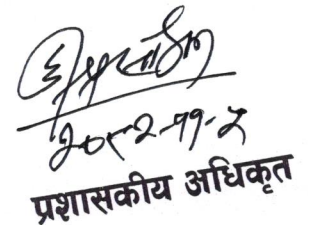 २०८२-११-५
प्रशासकीय अधिकृत